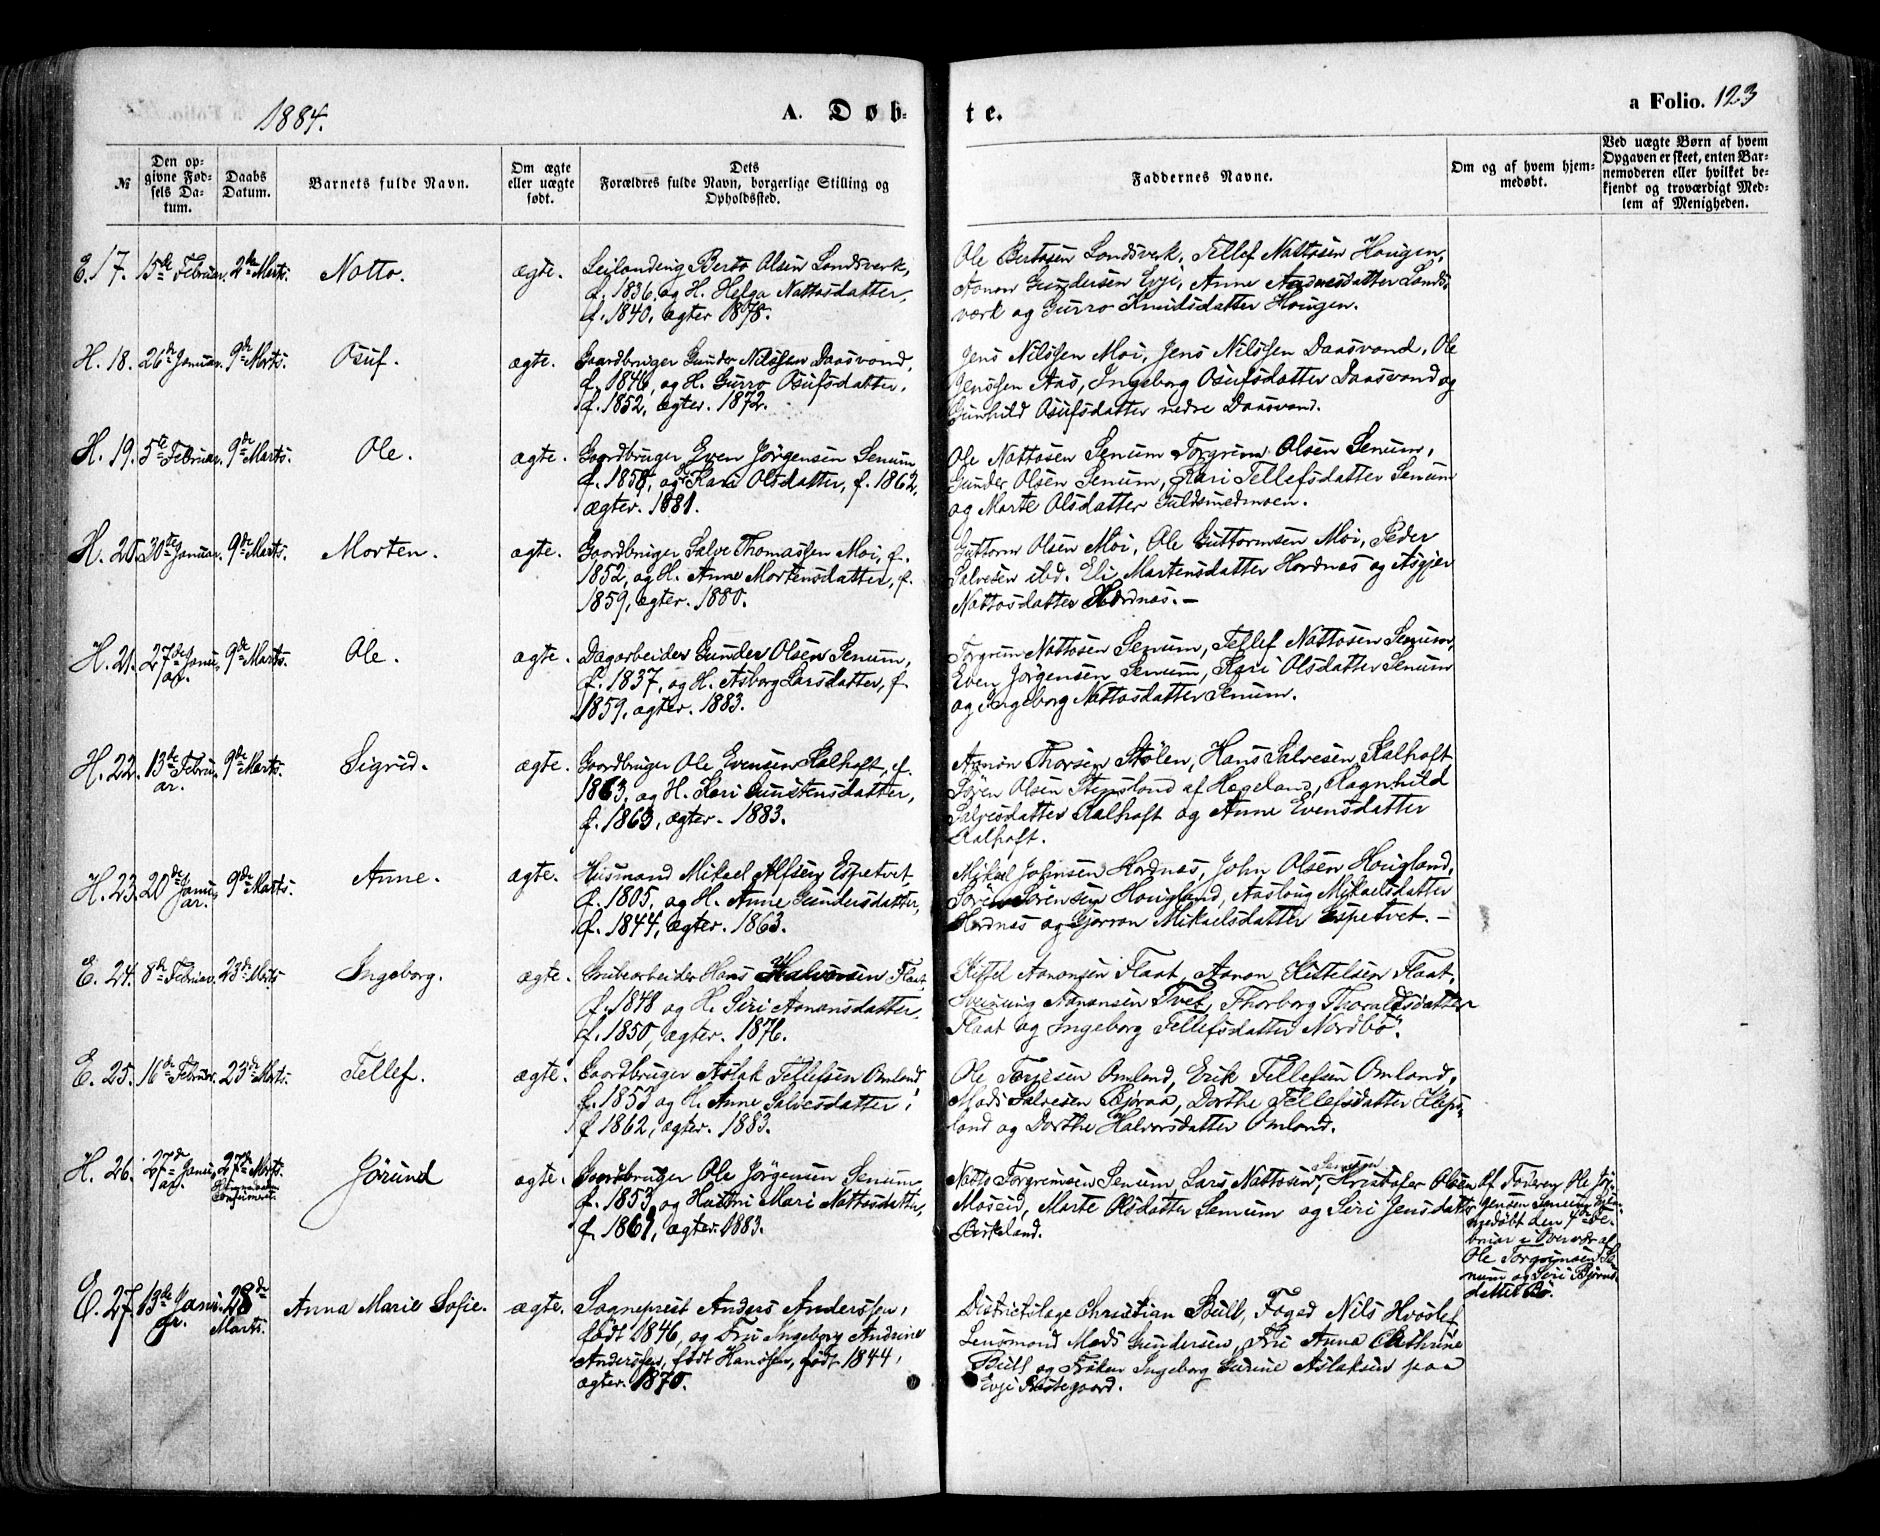 1884.
A. Døb-
te.
a Folio. 123
№
Den op-
givne Fød-
sels Da-
tum.
Daabs
Datum.
Barnets fulde Navn.
Om ægte
eller uægte
født.
Dets
Forældres fulde Navn, borgerlige Stilling og
Opholdssted.
Faddernes Navne.
Om og af hvem hjem-
medøbt.
Ved uægte Børn af hvem
Opgaven er skeet, enten Bar-
nemoderen eller hvilket be-
kjendt og troværdigt Med-
lem af Menigheden.
E. 17. 15de Februar. 2de Marts. Notto. ægte.
Leilænding Berto Olsen Landsverk,
f. 1836, og H. Helga Nattosdatter,
f. 1840, ægter 1878.
Ole Bertosen Landsverk, Tellef Nattosen Hougen,
Aanon Gundersen Evje, Anne Andersdatter Lands-
værk og Gurro Knudsdatter Hougen.
H. 18. 26de Januar. 9de Marts. Osuf. ægte.
Gaardbruger Gunder Nilssen Daasvand,
f. 1846, og H. Gurro Osufsdatter,
f. 1852, ægter. 1872.
Jens Nilssen Moi, Jens Nilssen Daasvand, Ole
Jenssen Aas, Ingeborg Osufsdatter Daasvand og
Gunhild Osufsdatter nedre Daasvand.
H. 19. 5te Februar. 9de Marts. Ole. ægte.
Gaardbruger Even Jørgensen Senum
f. 1858, og H. Kari Olsdatter, f. 1862,
ægter. 1881.
Ole Nattosen Senum Torgrim Olsen Senum,
Gunder Olsen Senum, Kari Tellefsdatter Senum
og Marte Olsdatter Guldsmedmoen.
H. 20. 30te Januar. 9de Marts. Morten. ægte.
Gaardbruger Salve Thomassen Moi, f.
1852, og H. Anne Mortensdatter, f.
1859, ægter. 1880.
Guttorm Olsen Moi, Ole Guttormsen Moi, Peder
Salvesen ibd. Eli Martensdatter Hordnæs og Asgjer
Nattosdatter Hordnæs. —
H. 21. 27de Janu-
ar. 9de Marts. Ole. ægte.
Dagarbeider Gunder Olsen Senum,
f. 1837, og H. Asborg Larsdatter, f.
1859, ægter. 1883.
Torgrim Nattosen Senum, Tellef Nattosen Senum,
Even Jørgensen Senum, Kari Olsdatter Senum
og Ingeborg Nattosdatter Senum.
H. 22. 13de Febru-
ar. 9de Marts. Sigrid. ægte.
Gaardbruger Ole Evensen Kalhoft, f.
1863, og H. Kari Gunstensdatter,
f. 1863, ægter. 1883.
Aanon Thorsen Stølen, Hans Salvesen Kalhoft,
Søren Olsen Stensland af Hægeland, Ragnhild
Salvesdatter Kalhoft og Anne Evensdatter
Kalhoft.
H. 23. 20de Janu-
ar. 9de Marts. Anne. ægte.
Husmand Mikael Alfsen Espetvet,
f. 1805, og H. Anne Gundersdatter,
f. 1844, ægter. 1863.
Mikael Johnsen Hordnæs, John Olsen Hougland,
Søren Sørensen Hougland, Aaslaug Mikaelsdatter
Hordnæs og Gjørron Mikaelsdatter Espetvet. —
E. 24. 8de Februar. 23de Marts. Ingeborg. ægte.
Grubearbeider Hans Halvorsen Flaat,
f. 1848 og H. Siri Aanonsdatter,
f. 1850, ægter. 1876.
Kittel Aanonsen Flaat, Aanon Kittelsen Flaat,
Aanonsen Tvet, Thorborg Thoraldsdatter
Flaat og Ingeborg Tellefsdatter Nordbø.
E. 25. 16de Februar. 23de Marts. Tellef. ægte.
Gaardbruger Aslak Tellefsen Omland,
f. 1853 og H. Anne Salvesdatter,
f 1862, ægter. 1883.
Ole Torjesen Omland, Erik Tellefsen Omland,
Mads Salvesen Bjoraa, Dorthe Tellefsdatter Heps-
land og Dorthe Halvorsdatter Omland.
H. 26. 27de Janu-
ar. 27de Marts. Jørund ægte.
Gaardbruger Ole Jørgensen Senum
f. 1853 og Hustru Mari Nattosdatter,
f. 1861, ægter. 1883.
Natto Torgrimsen Senum, Lars Nattosen Senum, Kristofer Olsen
Moseid, Marte Olsdatter Senum og Siri Jensdatter
Birkeland.
Af Faderen Ole Jør-
gensen Senum hjem-
medøbt den 4de Fe-
bruar i Overvær af
Ole Torgrimsen Se-
num og Siri Bjørns-
datter Bø.
E. 27. 13de Janu-
ar. 28de
Marts. Anna Marie Sofie. ægte.
Sogneprest Anders Anderssen,
født 1846, og Fru Ingeborg Andrine
Anderssen, født Hanssen, født 1844,
ægter. 1870.
Districtslæge Christian Bull, Foged Nils Hvoslef
Lensmand Mads Gundersen, Fru Anna Cathrine
Bull og Frøken Ingeborg Gurine Aslaksen paa
Evje Prestegaard.